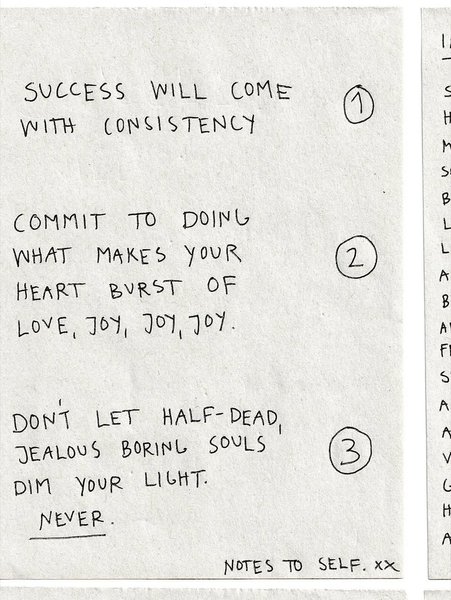 SUCCESS WILL COME 1
WITH CONSISTENCY
COMMIT TO DOING
WHAT MAKES YOUR 2
HEART BURST OF
LOVE, JOY, JOY, JOY.
DON'T LET HALF-DEAD,
JEALOUS BORING SOULS 3
DIM YOUR LIGHT.
NEVER.
NOTES TO SELF. xx